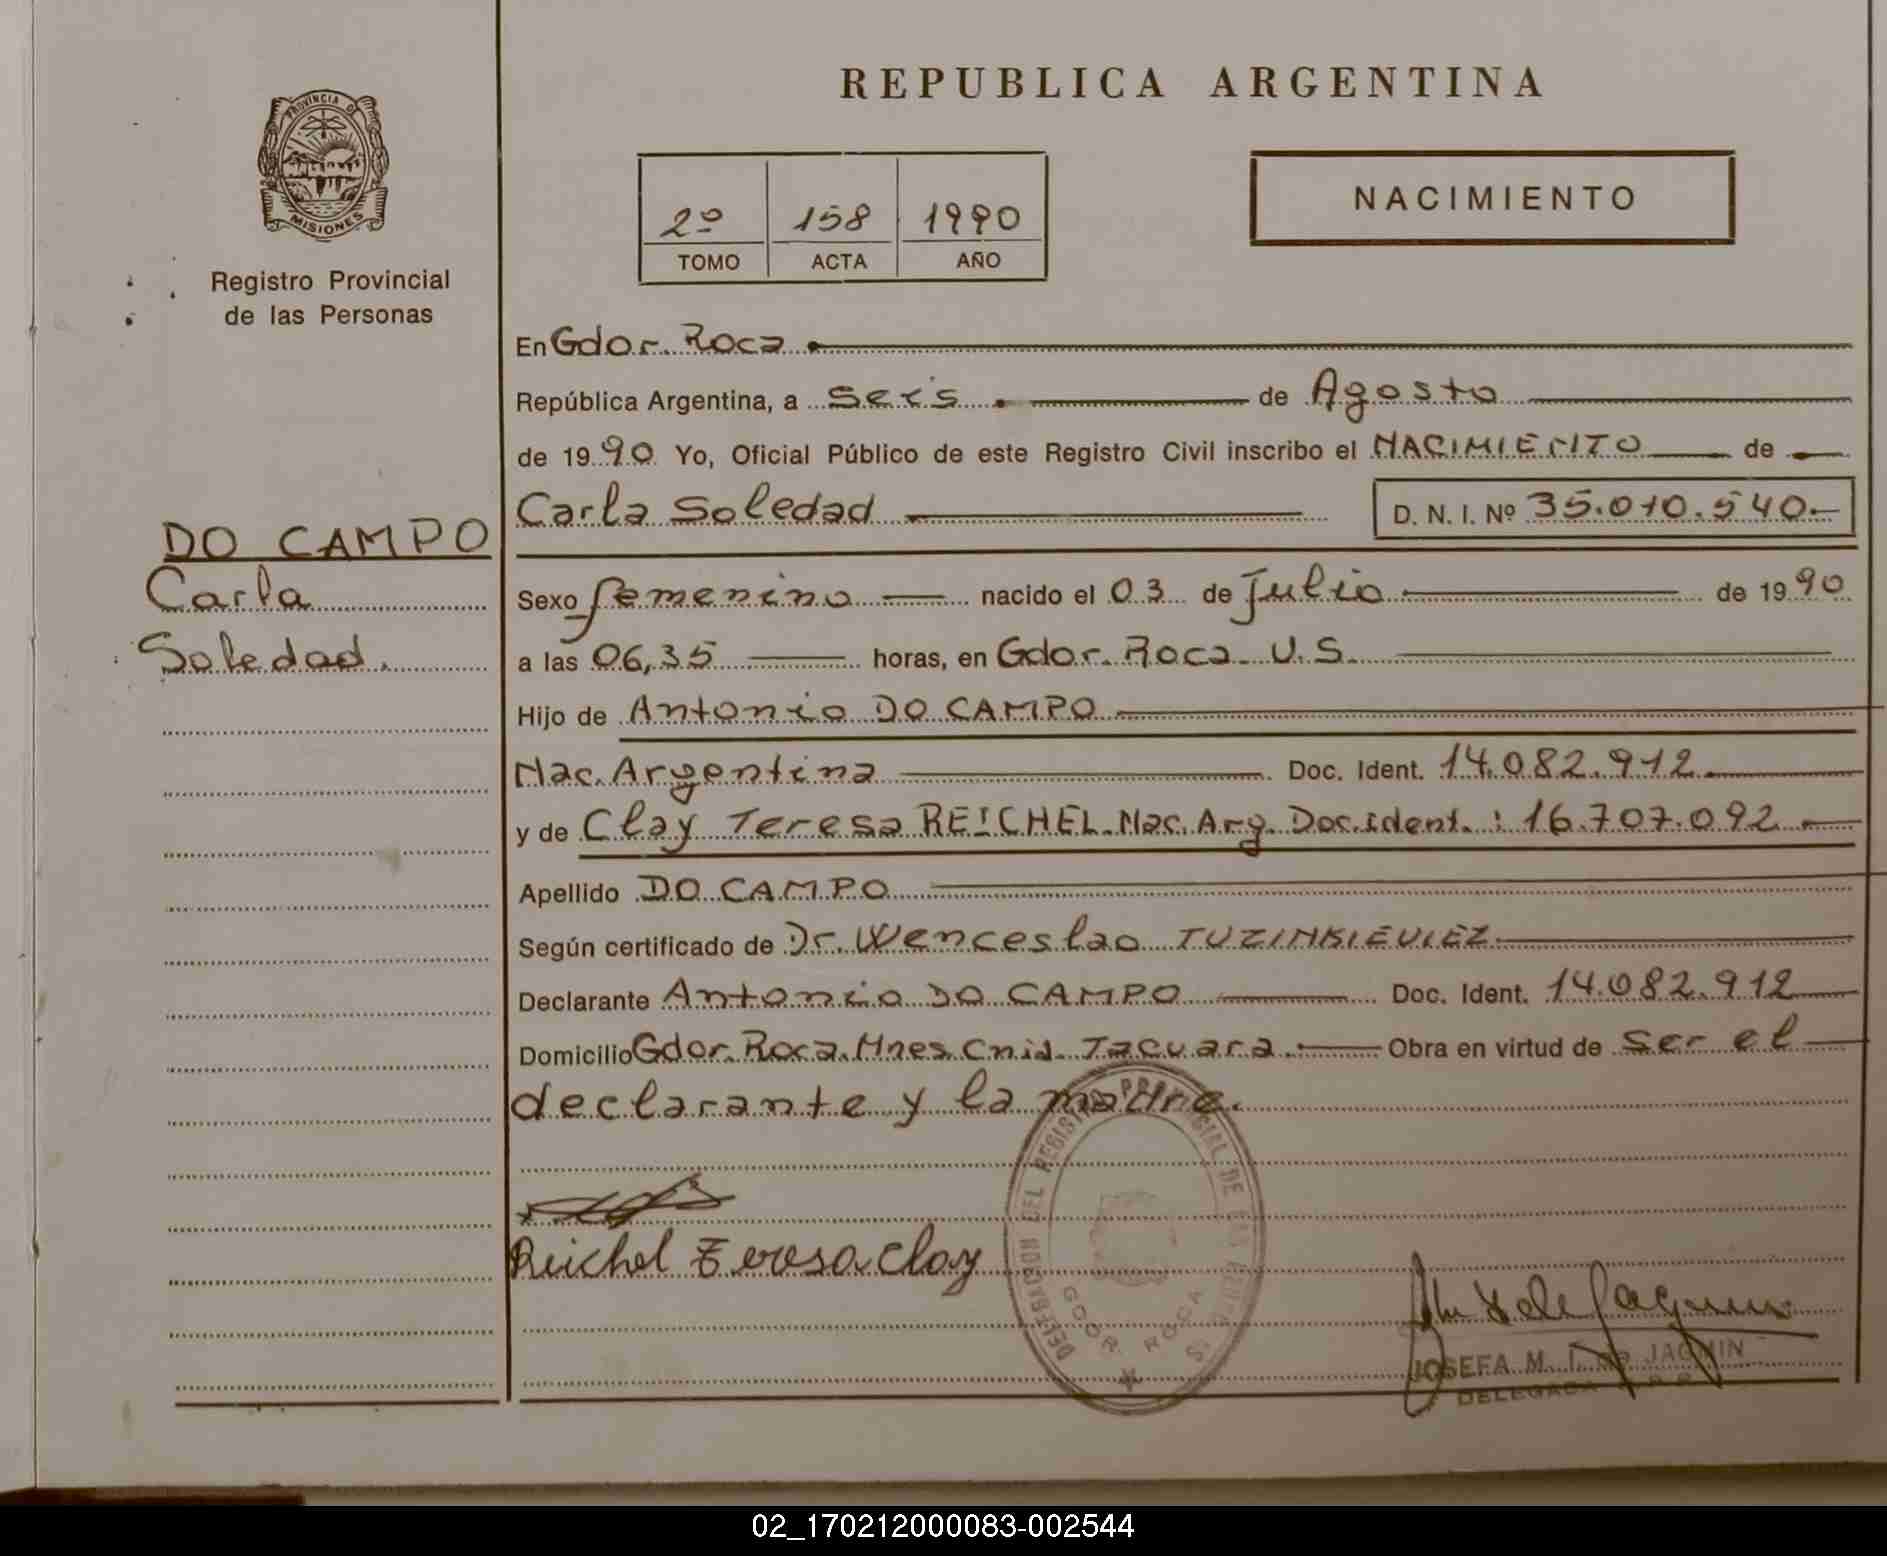 REPUBLICA ARGENTINA
PROVINCIA DE
MISIONES
Registro Provincial
de las Personas
2º 158 1990
TOMO ACTA AÑO
NACIMIENTO
DO CAMPO
Carla
Soledad.
En Gdor. Roca
República Argentina, a seis de Agosto
de 1990 Yo, Oficial Público de este Registro Civil inscribo el NACIMIENTO de
Carla Soledad D. N. I. Nº 35.010.540.-
Sexo femenino nacido el 03 de Julio de 1990
a las 06,35 horas, en Gdor. Roca U.S.
Hijo de Antonio DO CAMPO
Nac. Argentina Doc. Ident. 14.082.912
y de Clay Teresa REICHEL Nac. Arg. Doc. ident.: 16.707.092
Apellido DO CAMPO
Según certificado de Dr. Wenceslao TUZINKIEVIEZ
Declarante Antonio DO CAMPO Doc. Ident. 14.082.912
Domicilio Gdor. Roca. Mnes. Cnia. Tacuara. Obra en virtud de ser el
declarante y la madre.
Reichel Teresa Clay
DELEGACION DEL REGISTRO PROVINCIAL DE LAS PERSONAS
GDOR. ROCA
JOSEFA M. T. de JAGMIN
DELEGADA R. P. P.
02_170212000083-002544